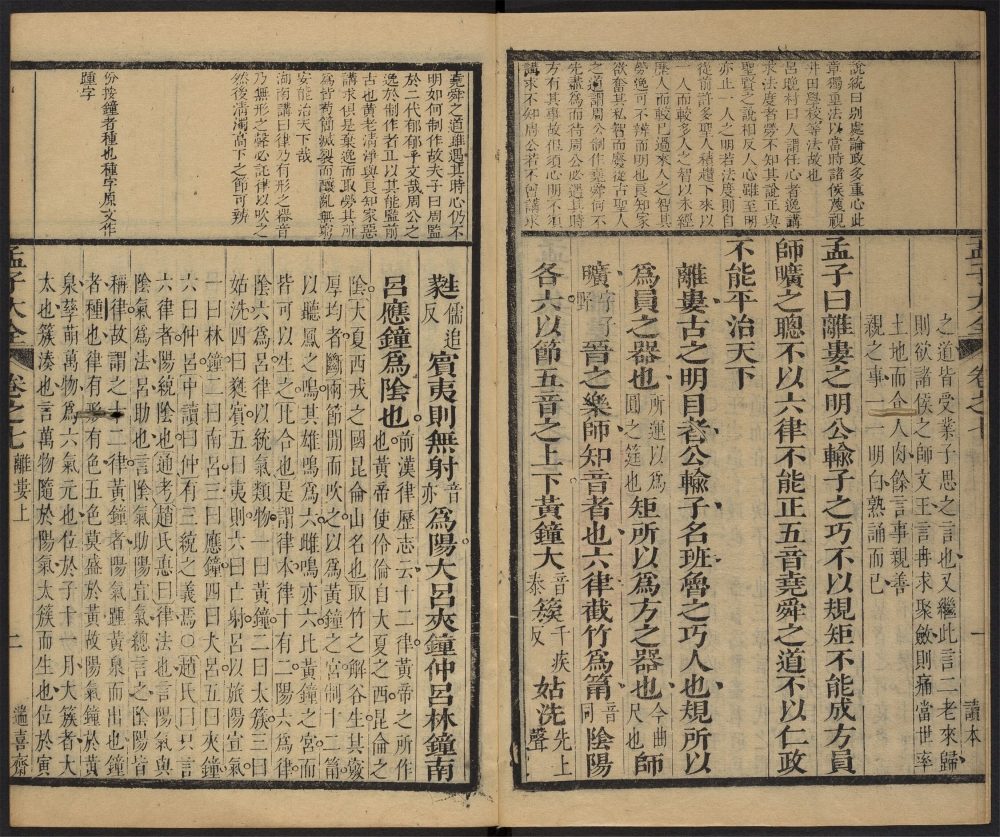 說統曰別處論政多重心此
章獨重法以當時諸侯蔑視
井田學校等法故也
呂晚村曰人謂任心者逸講
求法度者勞不知其說正與
聖賢之說相反人心雖至明
亦止一人之明若法度則自
從前許多聖人積趲下來以
一人而較多人之智以未經
歷人而較已過來人之智其
勞逸可不辨而明也良知家
欲奮其私智而廢從古聖人
之道謂周公制作堯舜何不
先盡為而待周公必遇其時
方有其事故但須心明不須
講求不知周公若不曾講求
之道皆受業子思之言也又繼此言二老來歸
則欲諸侯之師文王言冉求聚斂則痛當世率
土地而食人肉餘言事親善
親之事一一明白熟誦而已
孟子曰離婁之明公輸子之巧不以規矩不能成方員
師曠之聰不以六律不能正五音堯舜之道不以仁政
不能平治天下
離婁古之明目者公輸子名班魯之巧人也規所以
為員之器也所運以為圓之筳也矩所以為方之器也今曲尺也師
曠字子野晉之樂師知音者也六律截竹為筩音同陰陽
各六以節五音之上下黃鐘大音泰簇千族反姑洗先上聲
孟子大全
卷之七
一
讀本
堯舜之道雖遇其時心仍不
明如何制作故夫子曰周監
於二代郁郁乎文哉周公之
逸於制作者正以其能監前
古也黃老清淨與良知家惡
講求俱是棄逸而取勞其所
為皆苟簡滅裂而釀亂無窮
安能治天下哉
湖南講曰律乃有形之器音
乃無形之聲必託律以吹之
然後清濁高下之節可辨
份按鐘者種也種字原文作
踵字
蕤儒追反賓夷則無射音亦為陽大呂夾鐘仲呂林鐘南
呂應鐘為陰也前漢律歷志云十二律黃帝之所作也黃帝使伶倫自大夏之西昆侖之
陰大夏西戎之國昆侖山名也取竹之解谷生其竅
厚均者斷兩節間而吹之以為黃鐘之宮制十二筩
以聽鳳之鳴其雄鳴為六雌鳴亦六比黃鐘之宮而
皆可以生之比合也是謂律本律十有二陽六為律
陰六為呂律以統氣類物一曰黃鐘二曰太簇三曰
姑洗四曰蕤賓五曰夷則六曰亡射呂以旅陽宣氣
一曰林鐘二曰南呂三曰應鐘四曰大呂五曰夾鐘
六曰仲呂中讀曰仲有三統之義焉○趙氏曰只言
六律者陽統陰也通考趙氏悳曰律法也言陽氣與
陰氣為法呂助也言陰氣助陽宣氣總言之陰陽皆
稱律故謂之十二律黃鐘者陽氣踵黃泉而出也鐘
者種也律有形有色五色莫盛於黃故陽氣鐘於黃
泉孳萌萬物為六氣元也位於子十一月大簇者大
太也簇湊也言萬物隨於陽氣太簇而生也位於寅
孟子大全
卷之七離婁上
二
遄喜齋